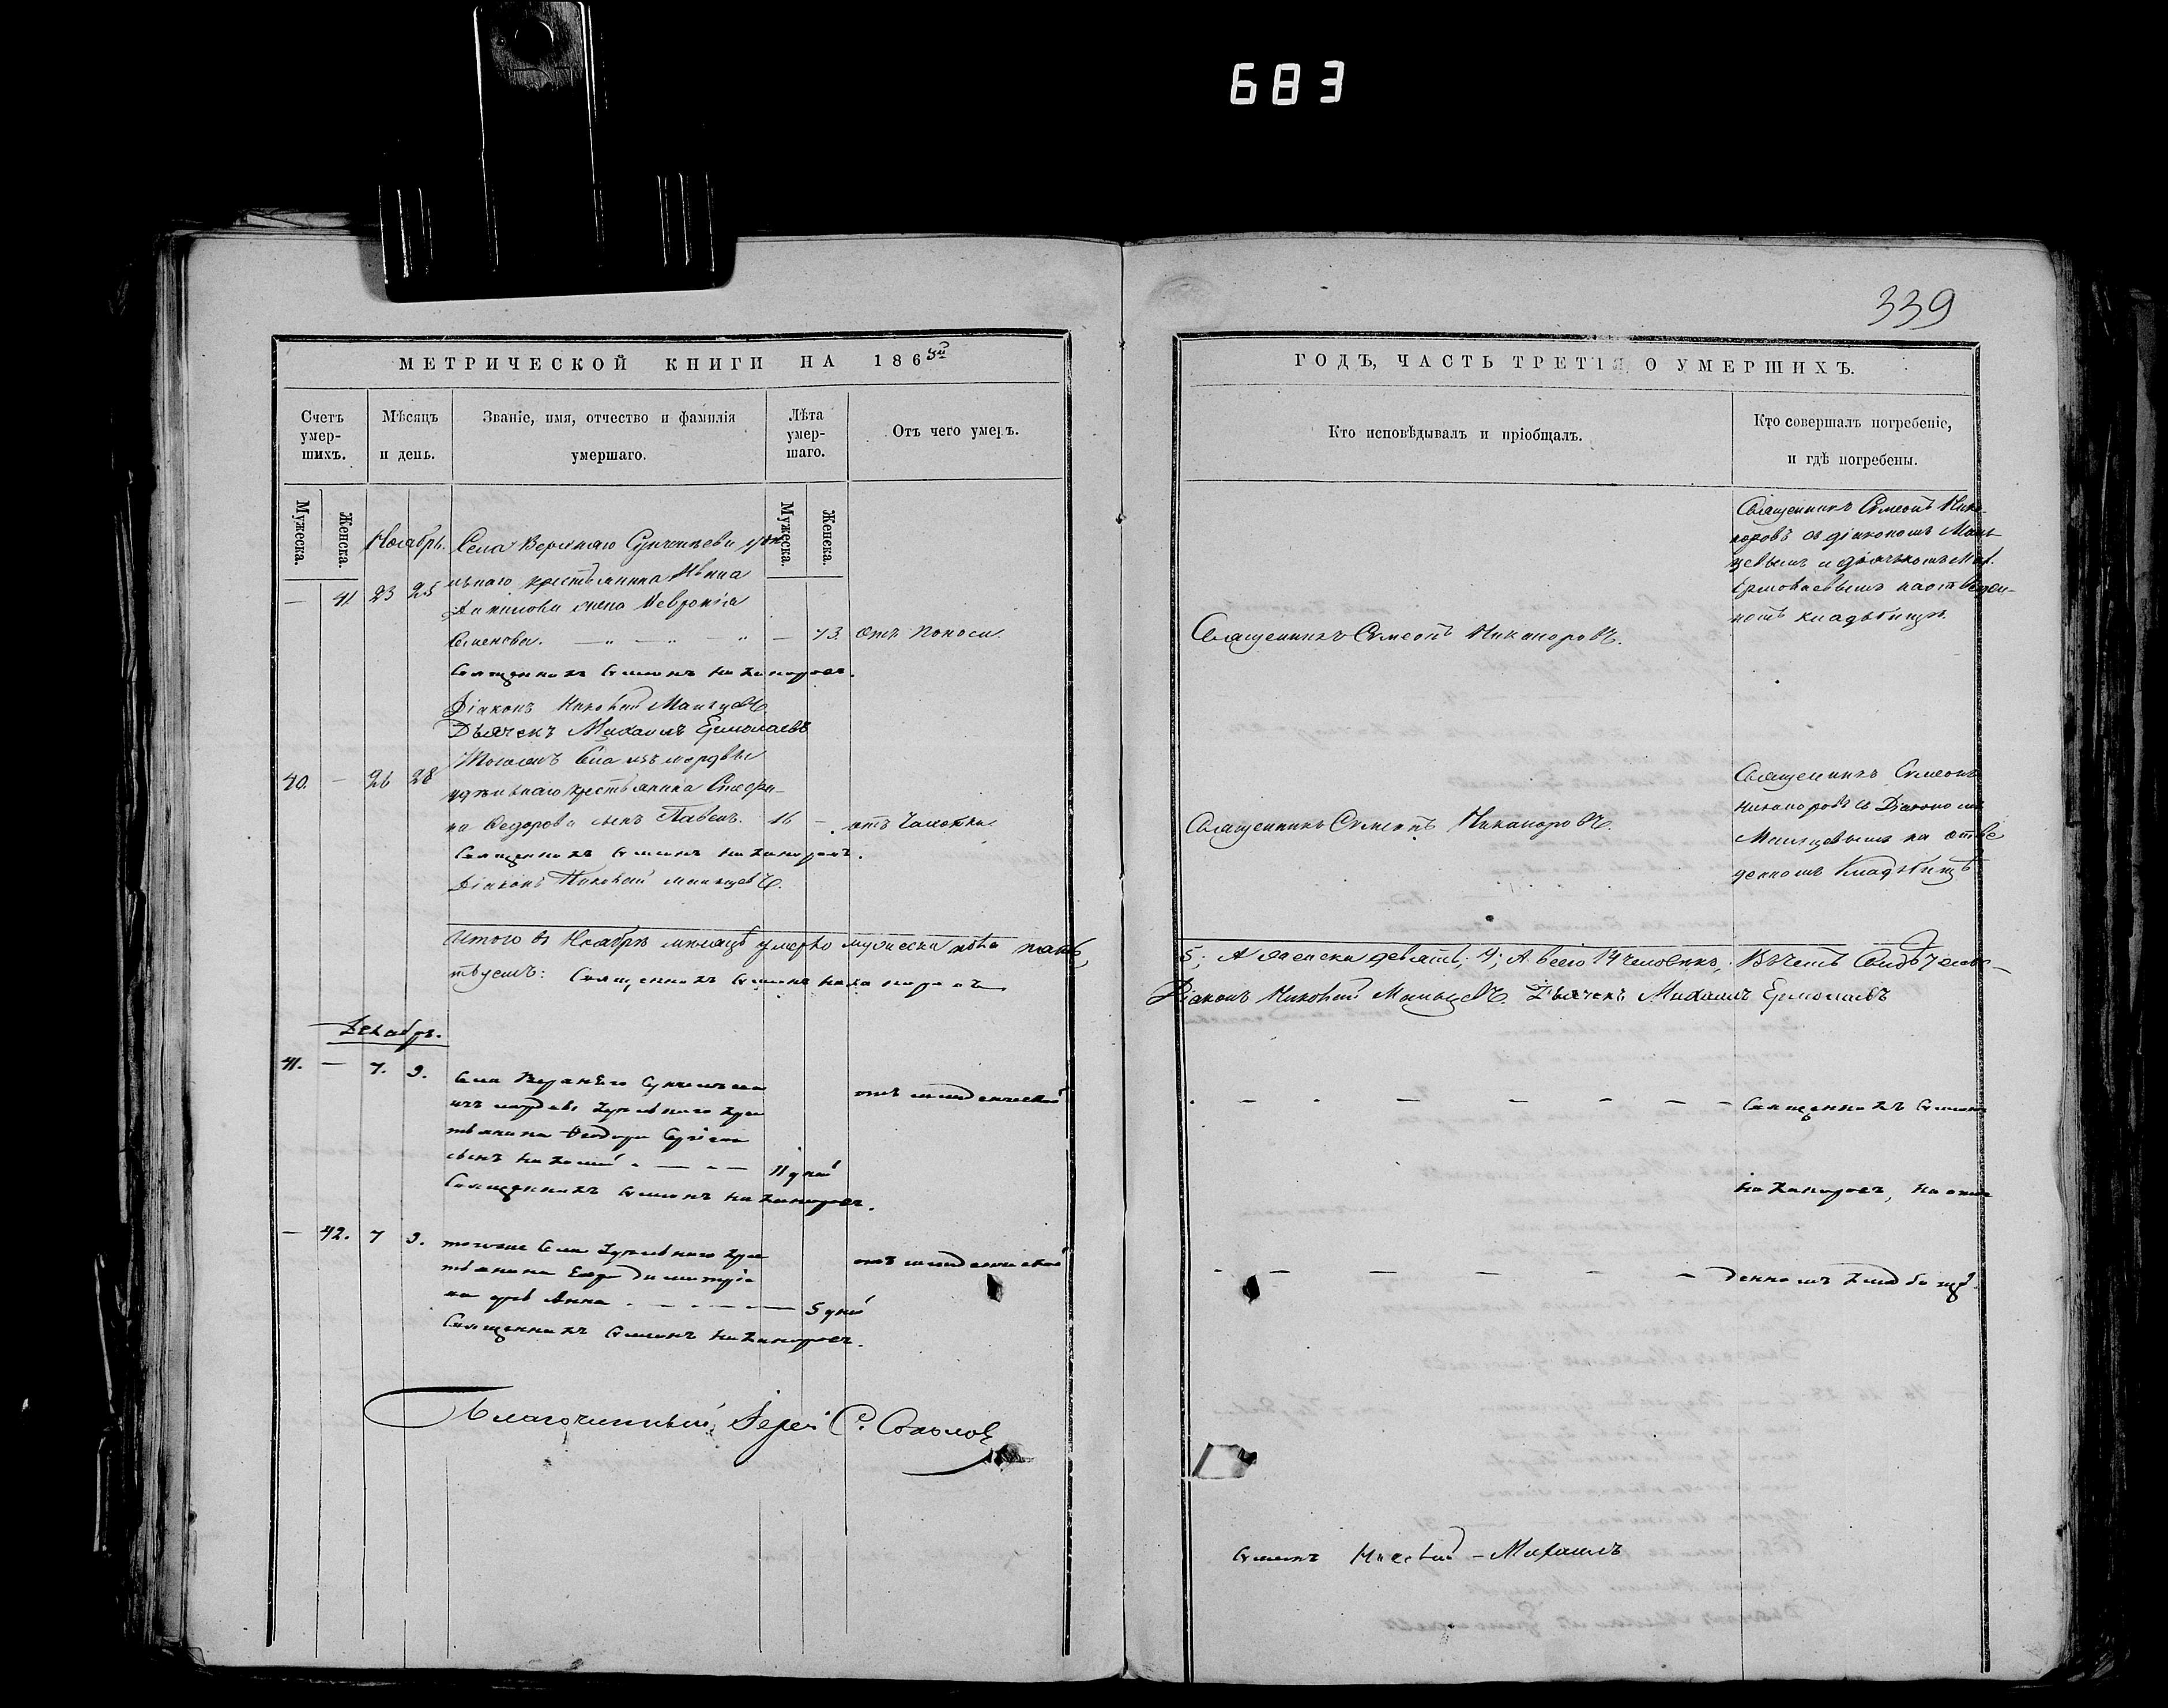 683
339
МЕТРИЧЕСКОЙ КНИГИ НА 1865й
Счетъ умер-шихъ.
Мѣсяцъ и день.
Званіе, имя, отчество и фамилія умершаго.
Лѣта умер-шаго.
Отъ чего умеръ.
Мужеска.
Женска.
Мужеска.
Женска.
Ноябрь.
Села Верхняго
— 41 23 25
крестьянина Ивана
Данилова жена Феврониа
Семенова. — — — 73. Отъ поноса.
Священникъ Симеонъ Никаноровъ.
Діаконъ Николай Мальцевъ.
Дьячекъ Михаилъ Ермолаевъ
Тогожъ села изъ мордвы
40. — 26 28 удѣльнаго крестьянина
на Федорова сынъ Павелъ. 16 — отъ чахотки
Священникъ Симеонъ Никаноровъ.
Діаконъ Николай Мальцевъ.
Итого въ Ноябрѣ мѣсяцѣ умерло мужеска пола пять,
Священникъ Симеонъ Никаноровъ
Декабрь.
41. — 7. 9. Села
изъ мордвы удѣльнаго кре
стьянина Феодора
сынъ Николай — 11 дней
отъ младенческой
Священникъ Симеонъ Никаноровъ.
— 42. 7 9. тогоже села удѣльнаго кре
стьянина Димитріе
ва дочь Анна — 5 дней
отъ младенческой
Священникъ Симеонъ Никаноровъ.
Благочинный Іерей С. Соколовъ
ГОДЪ, ЧАСТЬ ТРЕТІЯ О УМЕРШИХЪ.
Кто исповѣдывалъ и пріобщалъ.
Кто совершалъ погребеніе,
и гдѣ погребены.
Священникъ Симеонъ Ника-
норовъ съ діакономъ Маль-
цевымъ и дьячкомъ Мих.
Ермолаевымъ на отведен-
номъ кладбищѣ.
Священникъ Симеонъ Никаноровъ.
Священникъ Симеонъ
Никаноровъ съ Діакономъ
Мальцевымъ на отве
денномъ кладбищѣ
Священникъ Симеонъ Никаноровъ.
5; А женска девять, 9; А всего 14 человѣкъ,
Діаконъ Николай Мальцевъ. Дьячекъ Михаилъ Ермолаевъ
Священникъ Симеонъ
Никаноровъ, на отве
денномъ кладбищѣ.
Симеонъ Николай – Михаилъ